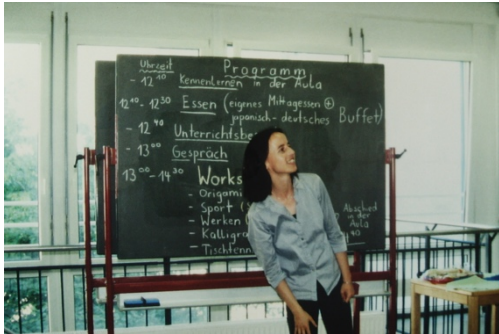 Uhrzeit Programm
- 12¹⁰ Kennenlernen in der Aula
12¹⁰ - 12³⁰ Essen (eigenes Mittagessen ⊕
japanisch-deutsches Buffet)
- 12⁴⁰ Unterrichtsbe
- 13⁰⁰ Gespräch
13⁰⁰ - 14³⁰ Works
- Origami
- Sport (
- Werken (
- Kalligra
- Tischtenn
Abschied
in der
Aula